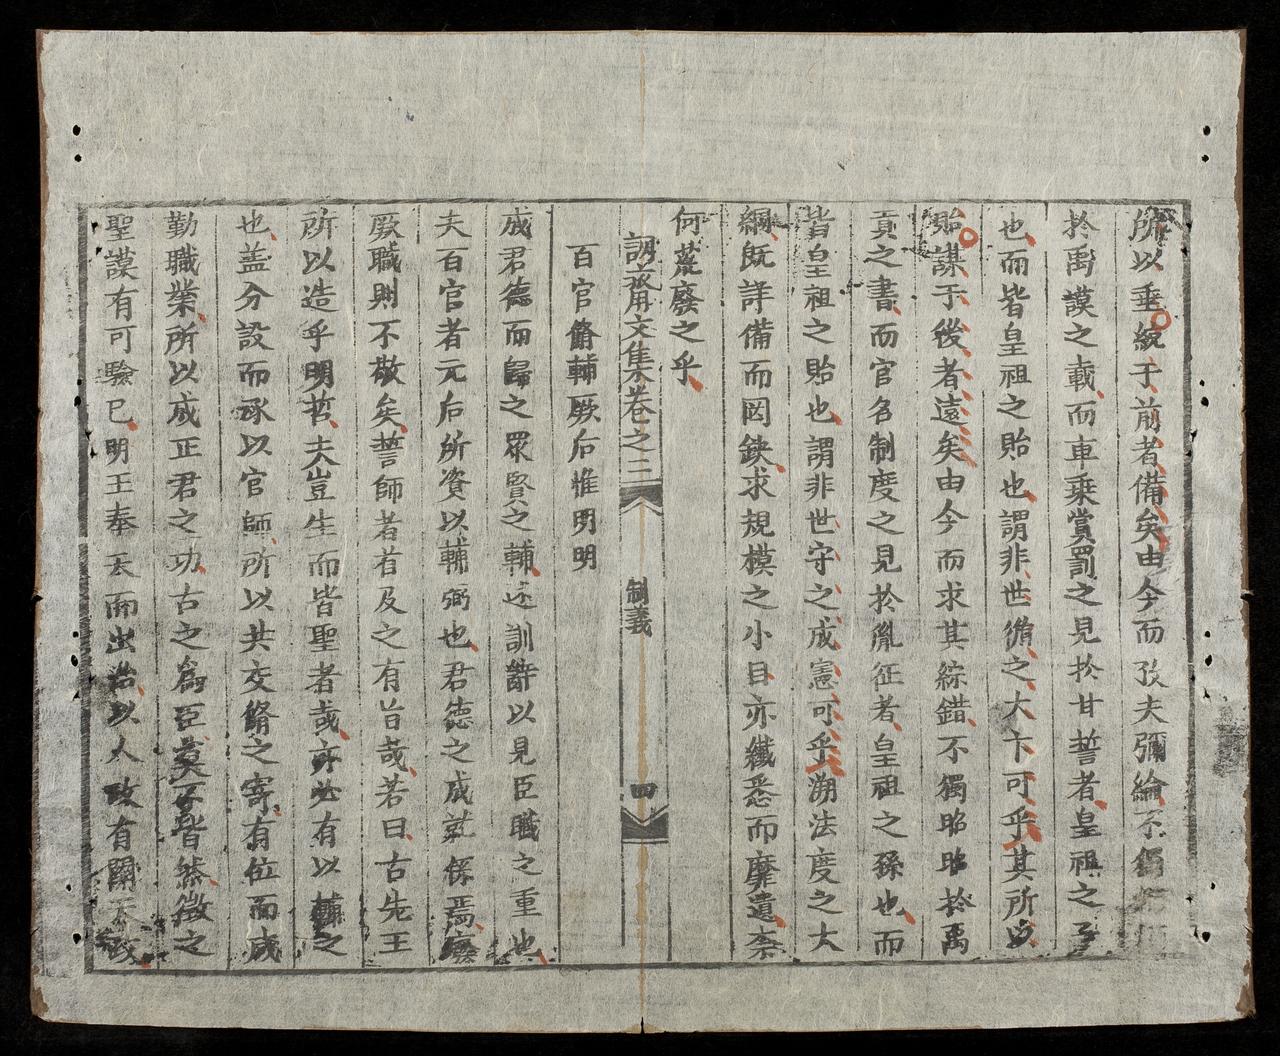 所以垂統于前者備矣由今而攷夫彌綸不獨
於禹謨之載而車乘賞罰之見於甘誓者皇祖之子
也而皆皇祖之貽也謂非世脩之大卞可乎其所以
貽謀于後者遠矣由今而求其綜錯不獨昭昭於禹
貢之書而官名制度之見於胤征者皇祖之孫也而
皆皇祖之貽也謂非世守之成憲可乎溯法度之大
綱既詳備而罔缺求規模之小目亦纖悉而靡遺柰
何荒廢之乎
訥齋文集卷之二 制義 四
百官脩輔厥后惟明明
成君德而歸之眾賢之輔述訓辭以見臣職之重也
夫百官者元后所資以輔弼也君德之成就係焉廢
厥職則不敬矣誓師者首及之有旨哉若曰古先王
所以造乎明哲夫豈生而皆聖者哉亦必有以輔之
也盖分設而承以官師所以共交脩之寄有位而咸
勤職業所以成正君之功古之爲臣莫不皆然徵之
聖謨有可驗已明王奉天而出治以人政有關天政